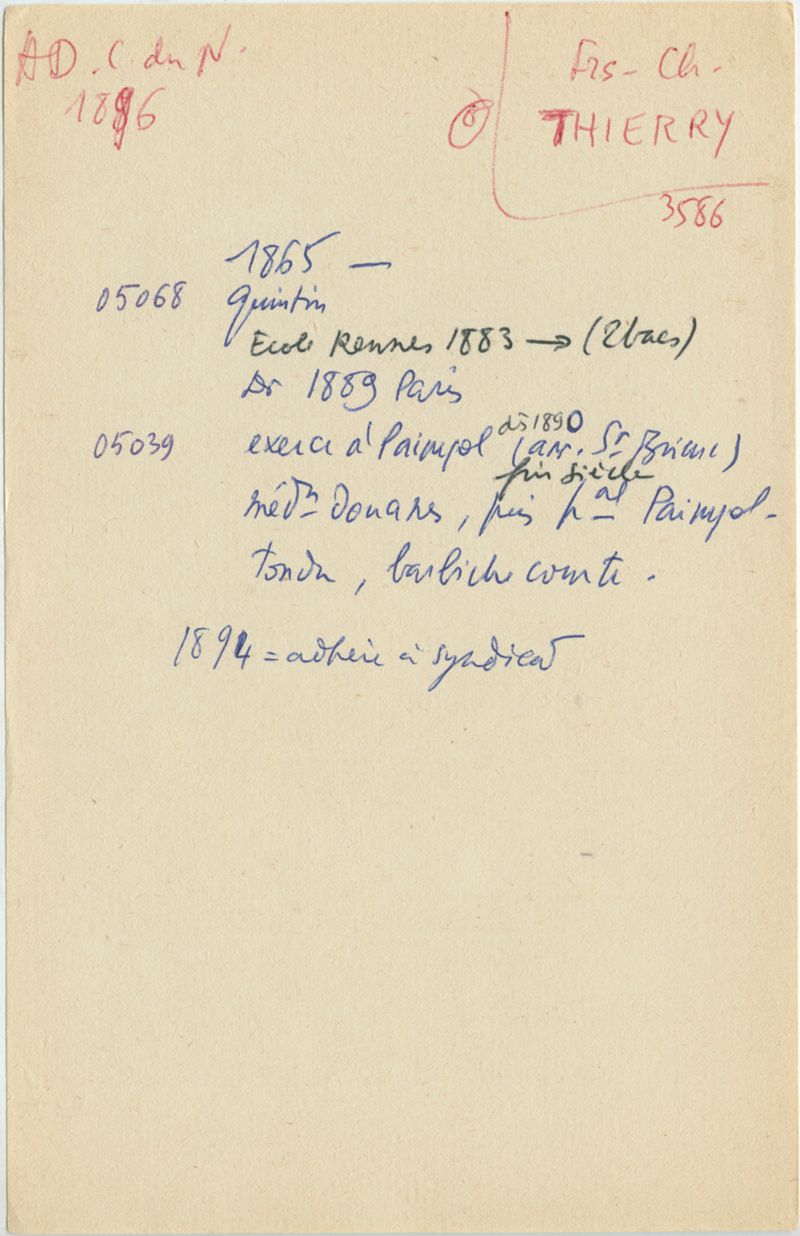 AD. C. du N.
1896
Frs-Ch.
THIERRY
3586
1865 —
05068 Quintin
Ecole Rennes 1883 → (2 bacs)
Dr 1889 Paris
dès 1890
05039 exerce à Paimpol (arr. St Brieuc)
fin siècle
médn Douanes, puis pal Paimpol-
tondu, barbiche courte.
1894 = adhère à syndicat